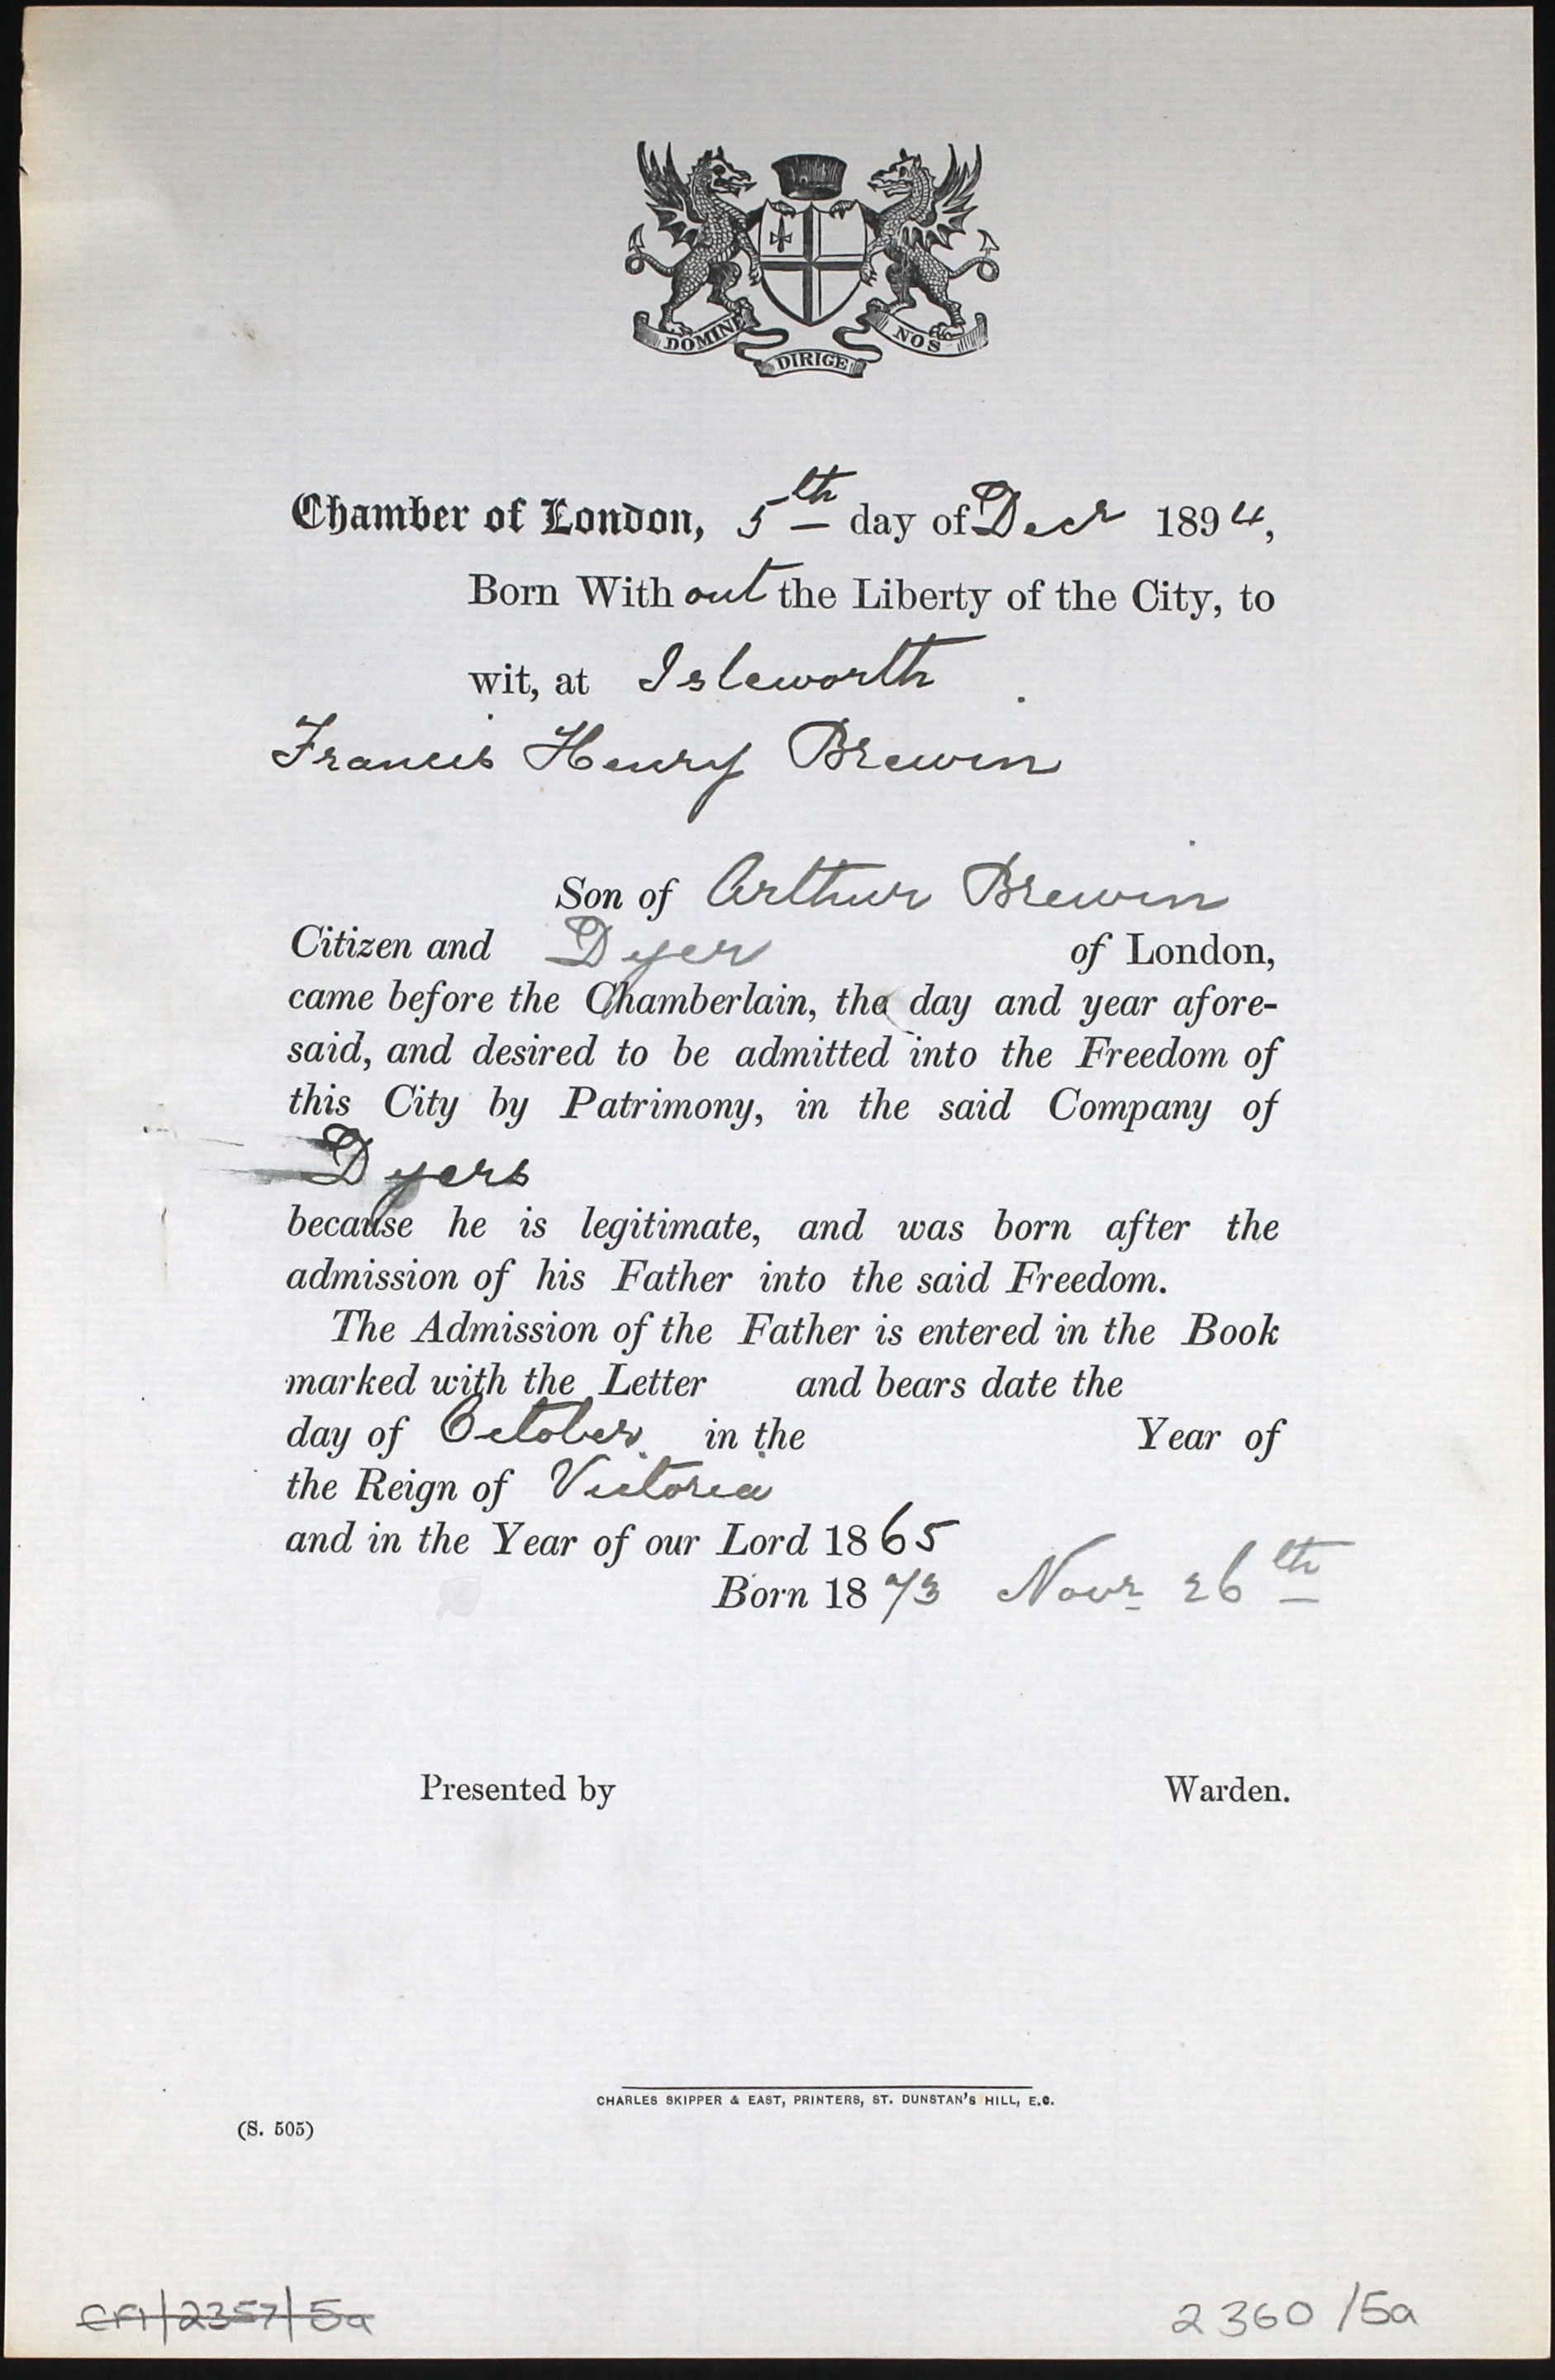 DOMINE DIRIGE NOS
Chamber of London, 5th day of Decr 1894,
Born Without the Liberty of the City, to
wit, at Isleworth
Francis Henry Brewin
Son of Arthur Brewin
Citizen and Dyer of London,
came before the Chamberlain, the day and year afore-
said, and desired to be admitted into the Freedom of
this City by Patrimony, in the said Company of
Dyers
because he is legitimate, and was born after the
admission of his Father into the said Freedom.
The Admission of the Father is entered in the Book
marked with the Letter and bears date the
day of October in the Year of
the Reign of Victoria
and in the Year of our Lord 1865
Born 1873 Novr 26th
Presented by Warden.
CHARLES SKIPPER & EAST, PRINTERS, ST. DUNSTAN'S HILL, E.C.
(S. 505)
CF1/2357/5a 2360/5a